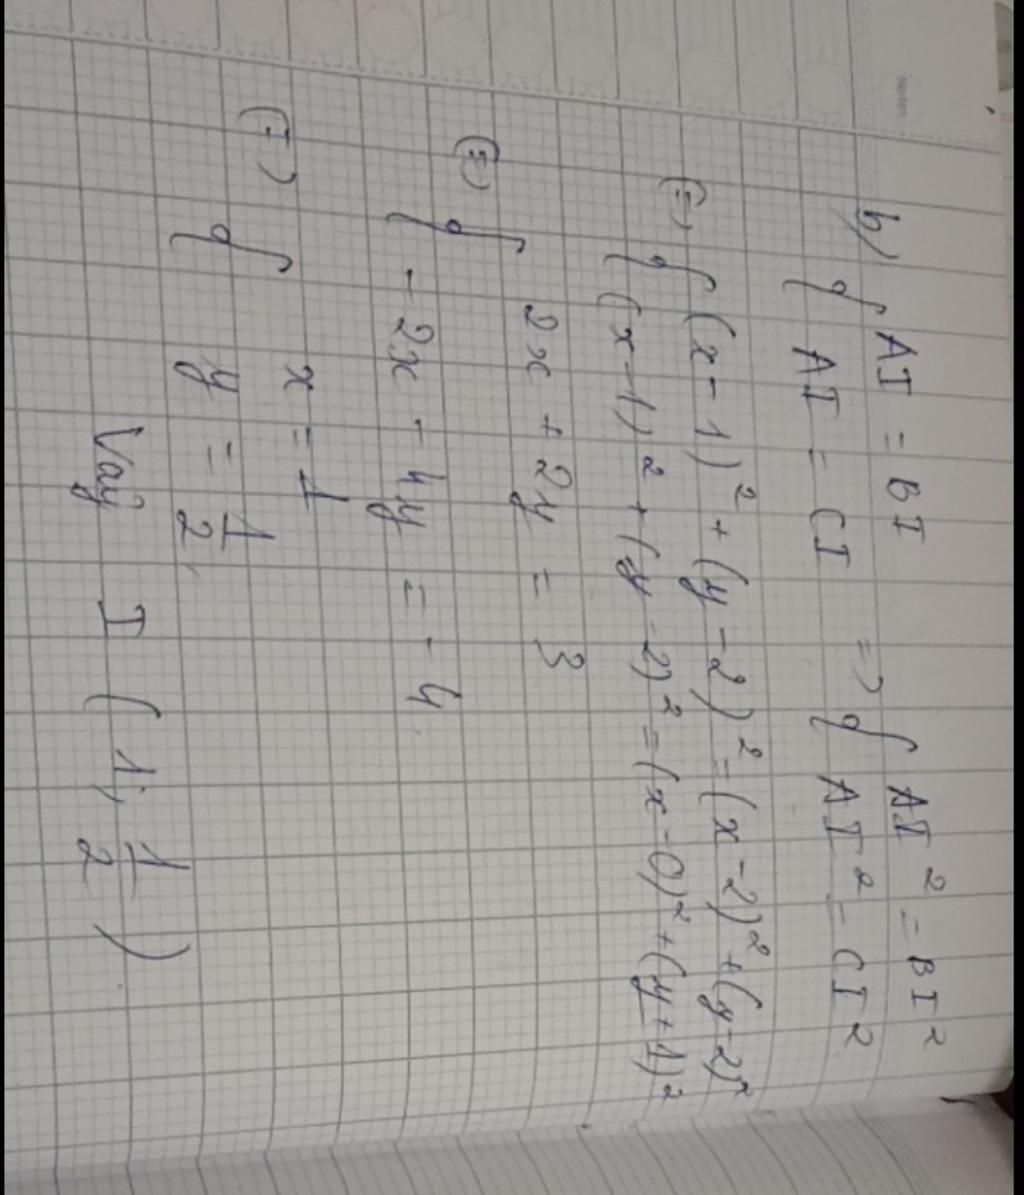 b) { AI = BI
AI = CI => { AI² = BI²
AI² = CI²
(=) { (x-1)² + (y-2)² = (x-2)² + (y-2)²
(x-1)² + (y-2)² = (x-0)² + (y+1)²
(=) { 2x + 2y = 3
-2x - 4y = -4
(=) { x = 1
y = 1/2
Vậy I (1; 1/2)